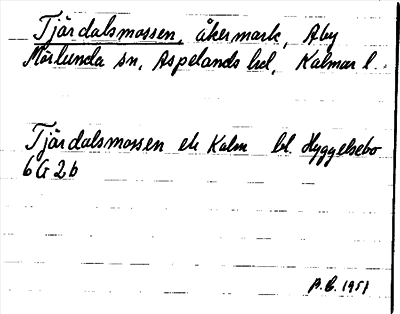 Tjärdalsmossen, åkermark, Åby
Mörlunda sn, Aspelands hd, Kalmar l.
Tjärdalsmossen ek Kalm bl. Hyggelsebo
6G2b
A.B. 1951